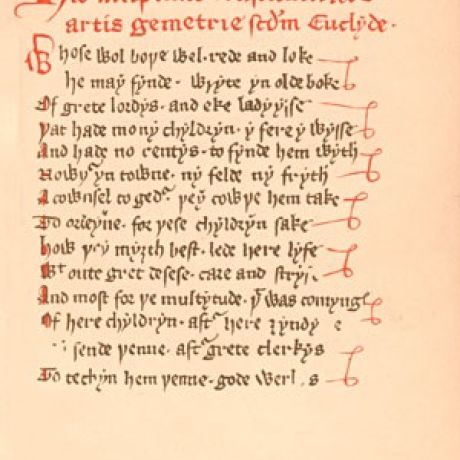 artis gemetrie scdm Euclyde.
Whose wol boþe wel rede and loke
he may fynde wryte yn olde boke
Of grete lordys and eke ladyysse
þat hade mony chyldryn y fere y wysse
And hade no rentys to fynde hem wyth
Nowþr yn towne ny felde ny fryth
A cownsel to gedr þey cowþe hem take
To ordeyne for þese chyldryn sake
how þey myȝth best lede here lyfe
Wt oute gret desese care and
And most for þe multytude þt was comyng
Of here chyldryn aftr here
sende þenne aftr grete clerkys
To techyn hem þenne gode